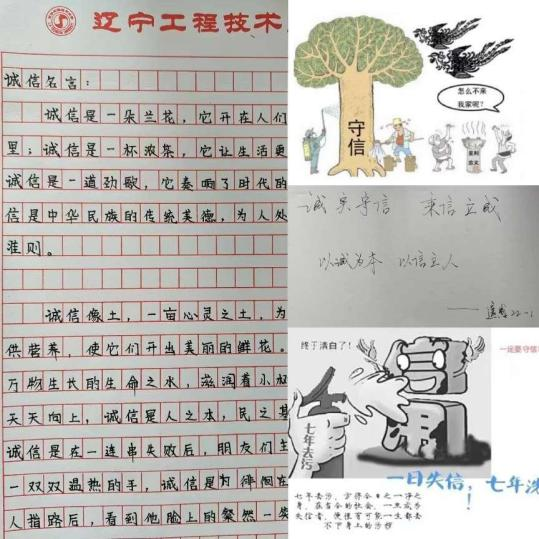 辽宁工程技术
诚信名言：
诚信是一朵兰花，它开在人们
里；诚信是一杯浓茶，它让生活更
诚信是一道劲歌，它奏响了时代的
信是中华民族的传统美德，为人处
准则。
诚信像土，一亩心灵之土，为
供营养，使它们开出美丽的鲜花。
万物生长的生命之水，滋润着小
天天向上，诚信是人之本，民之基
诚信是在一连串失败后，朋友们
一双双温热的手，诚信是为徘徊
人指路后，看到他脸上的粲然一笑
怎么不来
我家呢？
守信
诚实守信 秉信立诚
以诚为本 以信立人
22-1
终于清白了！
一定要守信
七年去污
信用
一日失信，七年洗
！
七年去污，方得今日之一净之
身，在当今的社会，一旦成为
失信者，便很有可能一生都去
不了身上的污秽